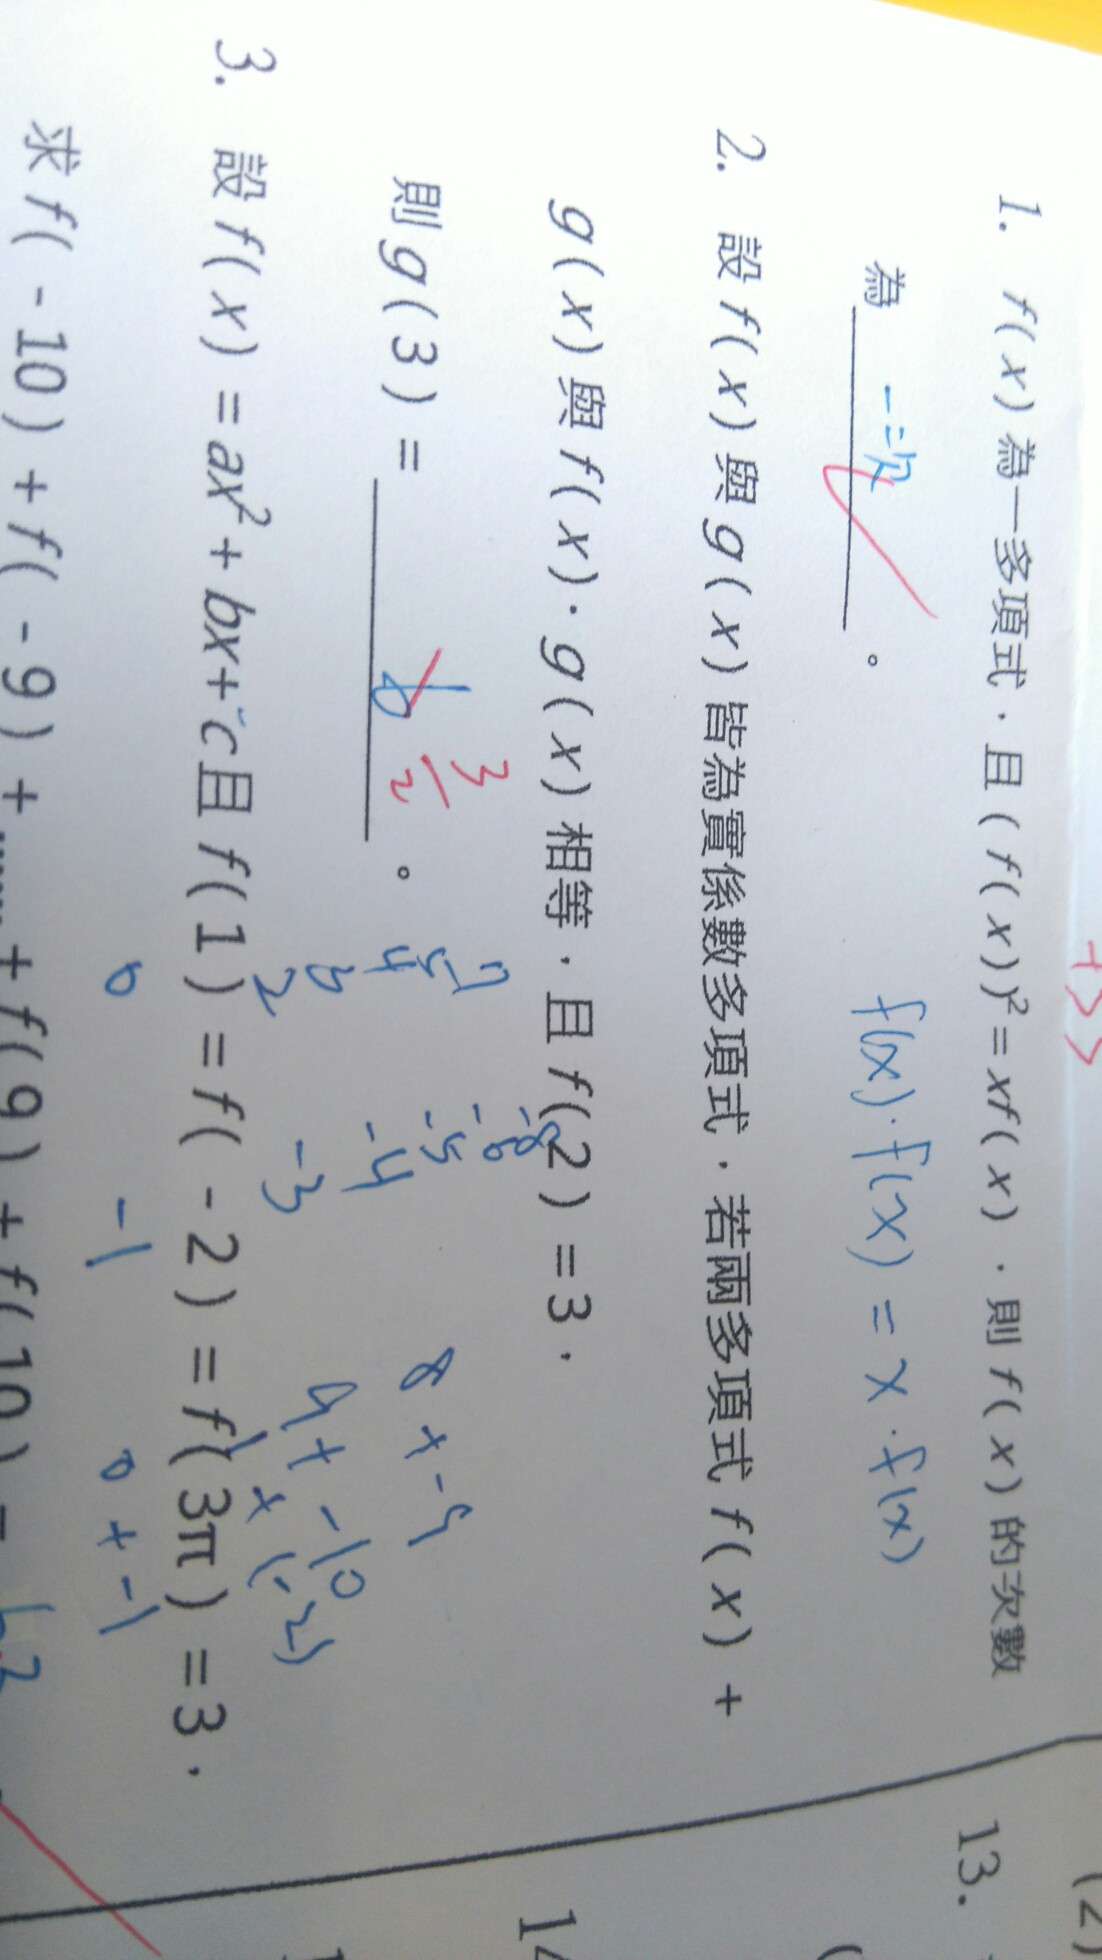 1. f(x)為一多項式，且(f(x))²=xf(x)，則f(x)的次數
為
一次
。
f(x)·f(x)=x·f(x)
2. 設f(x)與g(x)皆為實係數多項式，若兩多項式f(x)+
g(x)與f(x)·g(x)相等，且f(2)=3，
則g(3)=
6
3/2
。
7
5
4
6
2
-8
-6
-5
-4
-3
8+-9
9+-10
1+(-2)
3. 設f(x)=ax²+bx+c且f(1)=f(-2)=f(3π)=3，
0
-1
0+-1
求f(-10)+f(-9)+……+f(9)+f(10)=
63
13.
(2)
14
(